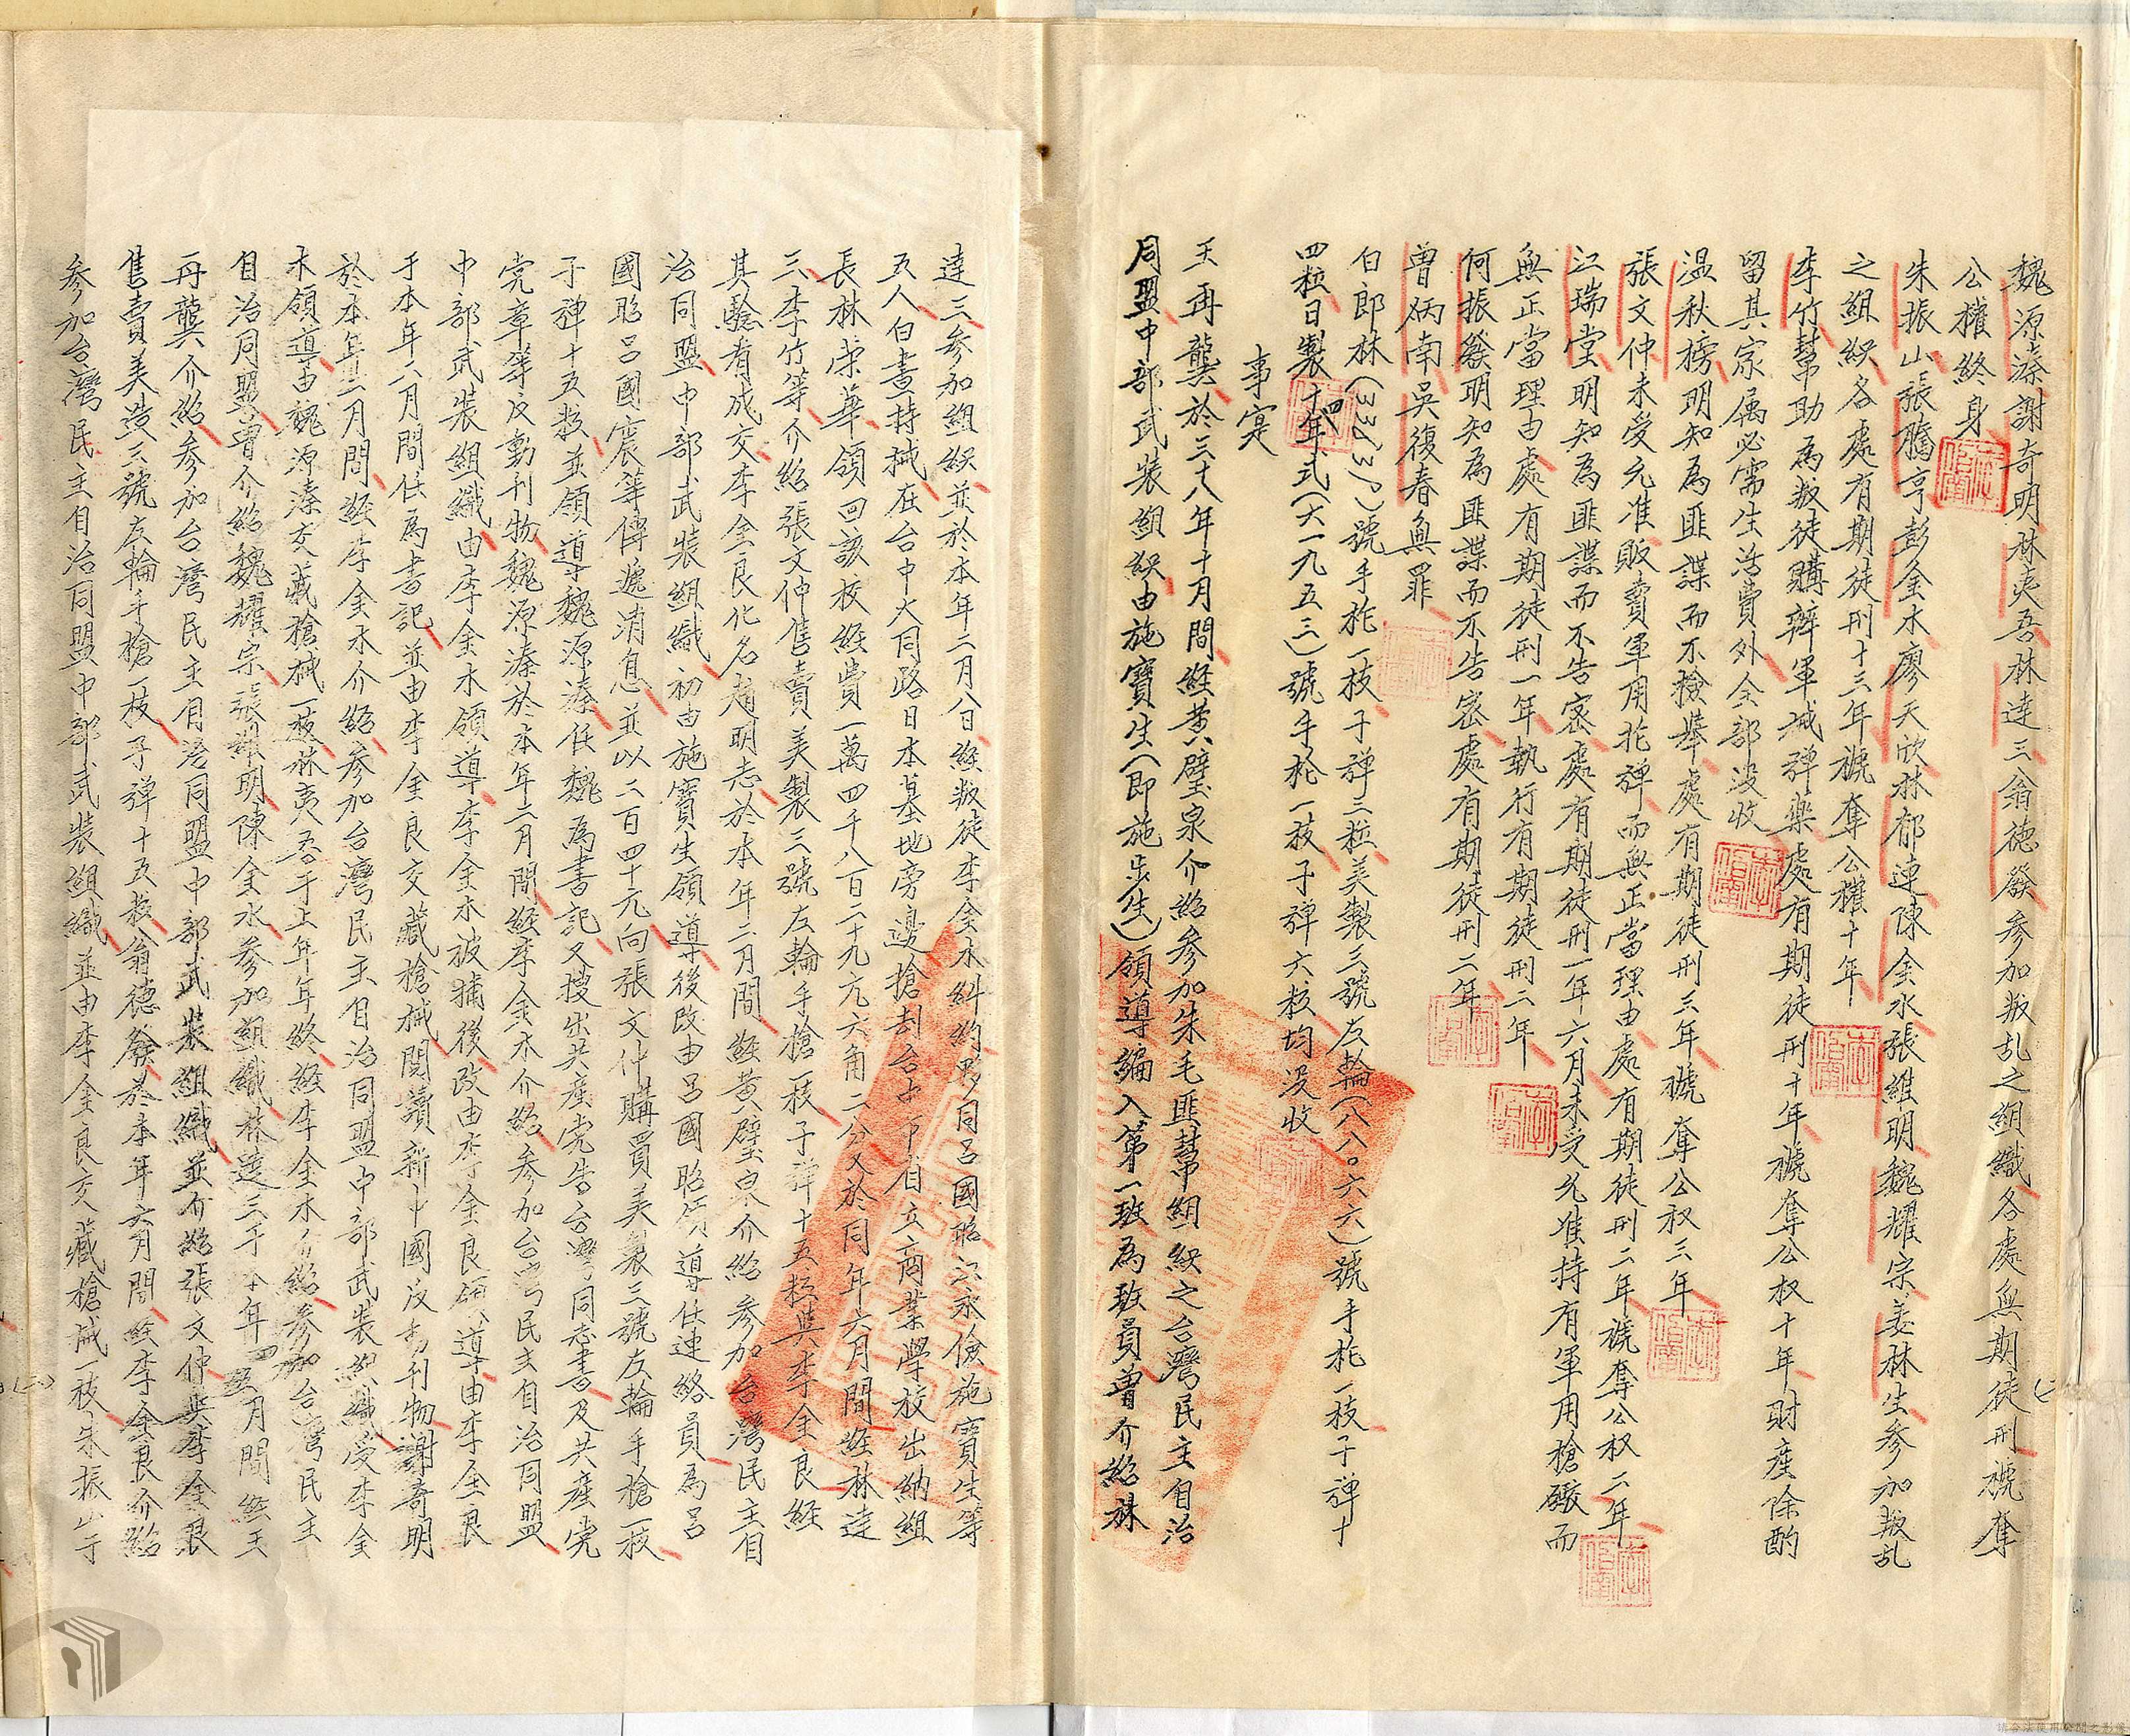 魏源溱謝奇明林夷吾林達三翁德發参加叛乱之組織各處無期徒刑褫奪
公權終身
朱振山張騰亨彭金木廖天欣林郁連陳金水張維明魏耀宗姜林生參加叛乱
之組織各處有期徒刑十三年褫奪公權十年
李竹幫助為叛徒購辦軍械彈藥處有期徒刑十年褫奪公权十年財產除酌
留其家属必需生活費外全部没收
温秋榜明知為匪諜而不檢舉處有期徒刑三年褫奪公权三年
張文仲未受允准販賣軍用枪彈而無正當理由處有期徒刑二年褫奪公权二年
江瑞堂明知為匪諜而不告密處有期徒刑一年六月未受允准持有軍用槍礟而
無正當理由處有期徒刑一年執行有期徒刑二年
何振發明知為匪諜而不告密處有期徒刑二年
曾炳南吳復春無罪
白郎林號手枪一枝子彈三粒美製三號左輪(八八〇六六)號手枪一枝子彈十
四粒日製十四年式(六一九五三)號手枪一枝子彈六粒均没收
事寔
王再龔於三十八年十月間經黄壁泉介紹參加朱毛匪幫組織之台灣民主自治
同盟中部武装組織由施寶生(即施步生)領導編入第一班為班員曾介紹林
達三参加組織並於本年二月八日經叛徒李金木糾約夥同呂國昭江永儉施寶生等
五人白晝持械在台中大同路日本墓地旁邊搶刦台中市省立商業學校出納組
長林荣華領回該校經費一萬四千八百二十九元六角二分又於同年六月間經林達
三李竹等介紹張文仲售賣美製三號左輪手槍一枝子彈十五粒與李金良經
其驗看成交李金良化名趙明志於本年二月間經黄壁泉介紹参加台灣民主自
治同盟中部武裝組織初由施寶生領導後改由呂國昭領導任連絡員為呂
國昭呂國震等傳遞消息並以二百四十元向張文仲購買美製三號左輪手槍一枝
子彈十五粒並領導魏源溱任魏為書記又搜出共産党告台灣同志書及共産党
党章等反動刊物魏源溱於本年二月間經李金木介紹参加台灣民主自治同盟
中部武裝組織由李金木領導李金木被捕後改由李金良領導由李金良
于本年六月間任為書記並由李金良交藏槍械閱讀新中國反動刊物謝奇明
於本年三月間經李金木介紹参加台灣民主自治同盟中部武裝組織受李金
木領導由魏源溱交藏槍械一枝林夷吾于上年年終經李金木介紹参加台灣民主
自治同盟曾介紹魏耀宗張維明陳金水参加組織林達三于本年四五月間經王
再龔介紹参加台灣民主自治同盟中部武裝組織並介紹張文仲與李金良
售賣美造三號左輪手槍一枝子彈十五粒翁德發於本年六月間經李金良介紹
参加台灣民主自治同盟中部武装組織並由李金良交藏槍械一枝朱振山于